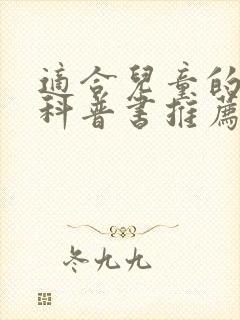 適合兒童的
科普書推薦
冬九九